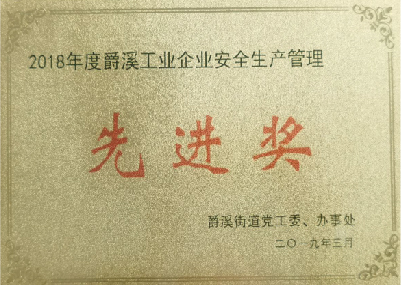 2018年度爵溪工业企业安全生产管理
先进奖
爵溪街道党工委、办事处
二〇一九年三月